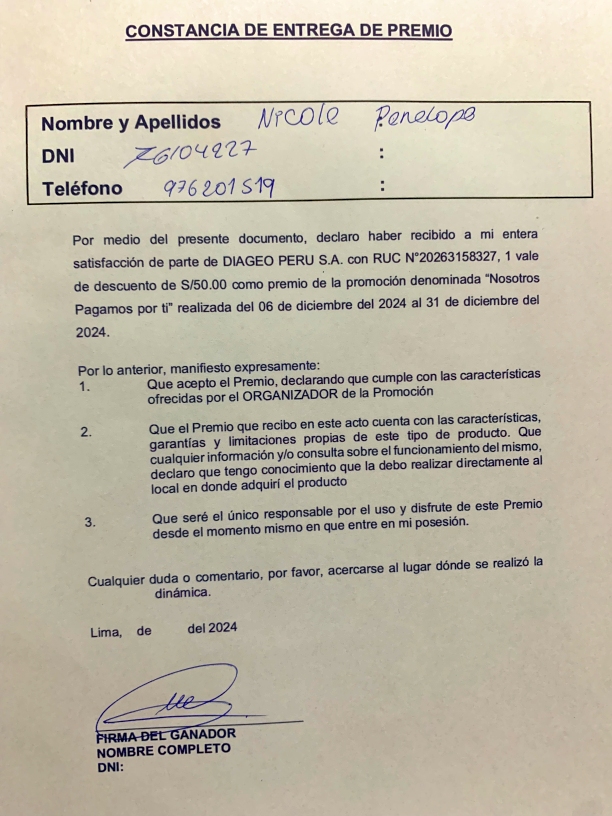 CONSTANCIA DE ENTREGA DE PREMIO
Nombre y Apellidos Nicole Penelope
DNI 76104227 :
Teléfono 976201519 :
Por medio del presente documento, declaro haber recibido a mi entera
satisfacción de parte de DIAGEO PERU S.A. con RUC N°20263158327, 1 vale
de descuento de S/50.00 como premio de la promoción denominada "Nosotros
Pagamos por ti" realizada del 06 de diciembre del 2024 al 31 de diciembre del
2024.
Por lo anterior, manifiesto expresamente:
1. Que acepto el Premio, declarando que cumple con las características
ofrecidas por el ORGANIZADOR de la Promoción
2. Que el Premio que recibo en este acto cuenta con las características,
garantías y limitaciones propias de este tipo de producto. Que
cualquier información y/o consulta sobre el funcionamiento del mismo,
declaro que tengo conocimiento que la debo realizar directamente al
local en donde adquirí el producto
3. Que seré el único responsable por el uso y disfrute de este Premio
desde el momento mismo en que entre en mi posesión.
Cualquier duda o comentario, por favor, acercarse al lugar dónde se realizó la
dinámica.
Lima, de del 2024
FIRMA DEL GANADOR
NOMBRE COMPLETO
DNI: